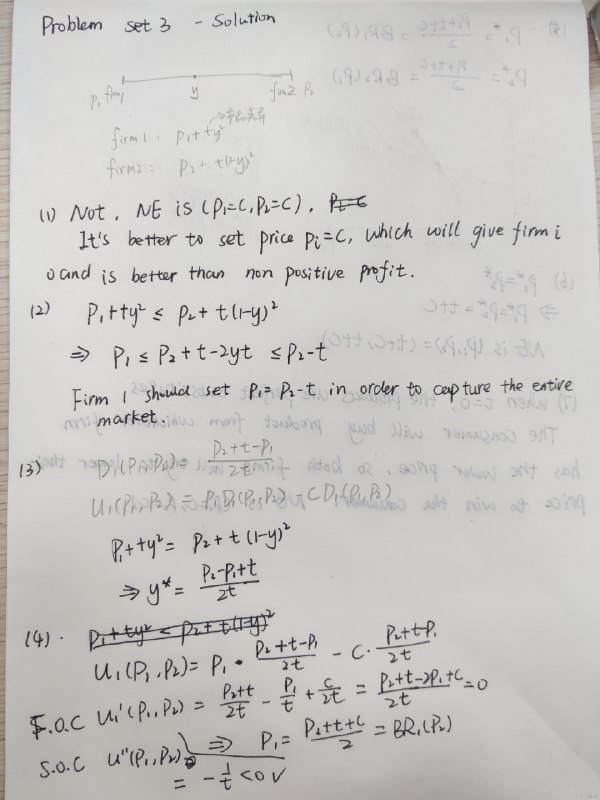 Problem set 3 - Solution
P₁ firm1 y firm2 P₂
→产品差异
firm1: P₁+ty²
firm2: P₂+t(1-y)²
(1) Not, NE is (P₁=C, P₂=C),
It's better to set price Pi=C, which will give firm i
0 and is better than non positive profit.
(2) P₁+ty² ≤ P₂+t(1-y)²
⇒ P₁ ≤ P₂+t-2yt ≤ P₂-t
Firm 1 should set P₁=P₂-t in order to capture the entire
market.
(3) D₁(P₁,P₂) = P₂+t-P₁/2t
U₁(P₁,P₂) = P₁D₁(P₁,P₂) - CD₁(P₁,P₂)
P₁+ty² = P₂+t(1-y)²
⇒ y* = P₂-P₁+t/2t
(4). P₁+ty² < P₂+t(1-y)²
U₁(P₁,P₂) = P₁ · P₂+t-P₁/2t - C · P₂+t-P₁/2t
F.O.C U₁'(P₁,P₂) = P₂+t/2t - P₁/t + C/2t = P₂+t-2P₁+C/2t = 0
⇒ P₁ = P₂+t+C/2 = BR₁(P₂)
S.O.C U''(P₁,P₂)
= -1/t < 0 ∨